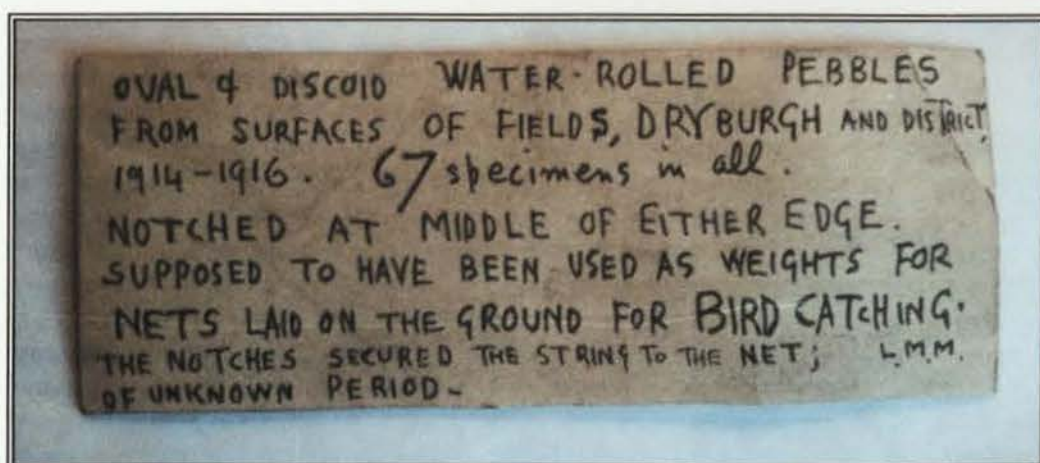 OVAL & DISCOID WATER-ROLLED PEBBLES
FROM SURFACES OF FIELDS, DRYBURGH AND DISTRICT,
1914-1916. 67 specimens in all.
NOTCHED AT MIDDLE OF EITHER EDGE.
SUPPOSED TO HAVE BEEN USED AS WEIGHTS FOR
NETS LAID ON THE GROUND FOR BIRD CATCHING.
THE NOTCHES SECURED THE STRING TO THE NET; L.M.M.
OF UNKNOWN PERIOD-